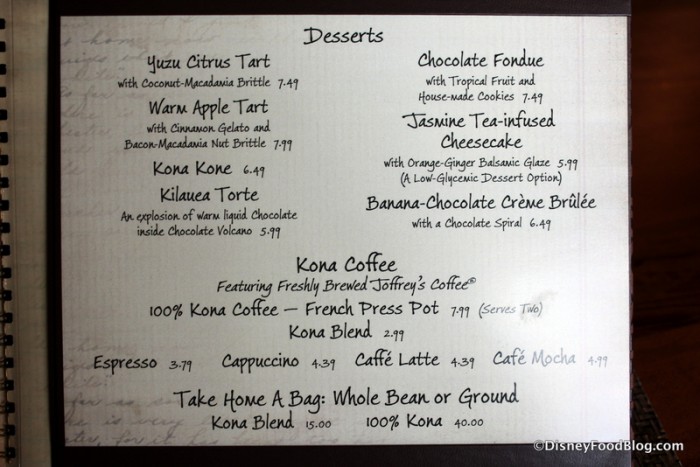 Desserts
Yuzu Citrus Tart
with Coconut-Macadamia Brittle 7.49
Warm Apple Tart
with Cinnamon Gelato and
Bacon-Macadamia Nut Brittle 7.99
Kona Kone 6.49
Kilauea Torte
An explosion of warm liquid Chocolate
inside Chocolate Volcano 5.99
Chocolate Fondue
with Tropical Fruit and
House-made Cookies 7.49
Jasmine Tea-infused
Cheesecake
with Orange-Ginger Balsamic Glaze 5.99
(A Low-Glycemic Dessert Option)
Banana-Chocolate Crème Brûlée
with a Chocolate Spiral 6.49
Kona Coffee
Featuring Freshly Brewed Joffrey's Coffee®
100% Kona Coffee — French Press Pot 7.99 (Serves Two)
Kona Blend 2.99
Espresso 3.79 Cappuccino 4.39 Caffé Latte 4.39 Café Mocha 4.99
Take Home A Bag: Whole Bean or Ground
Kona Blend 15.00 100% Kona 40.00
©DisneyFoodBlog.com